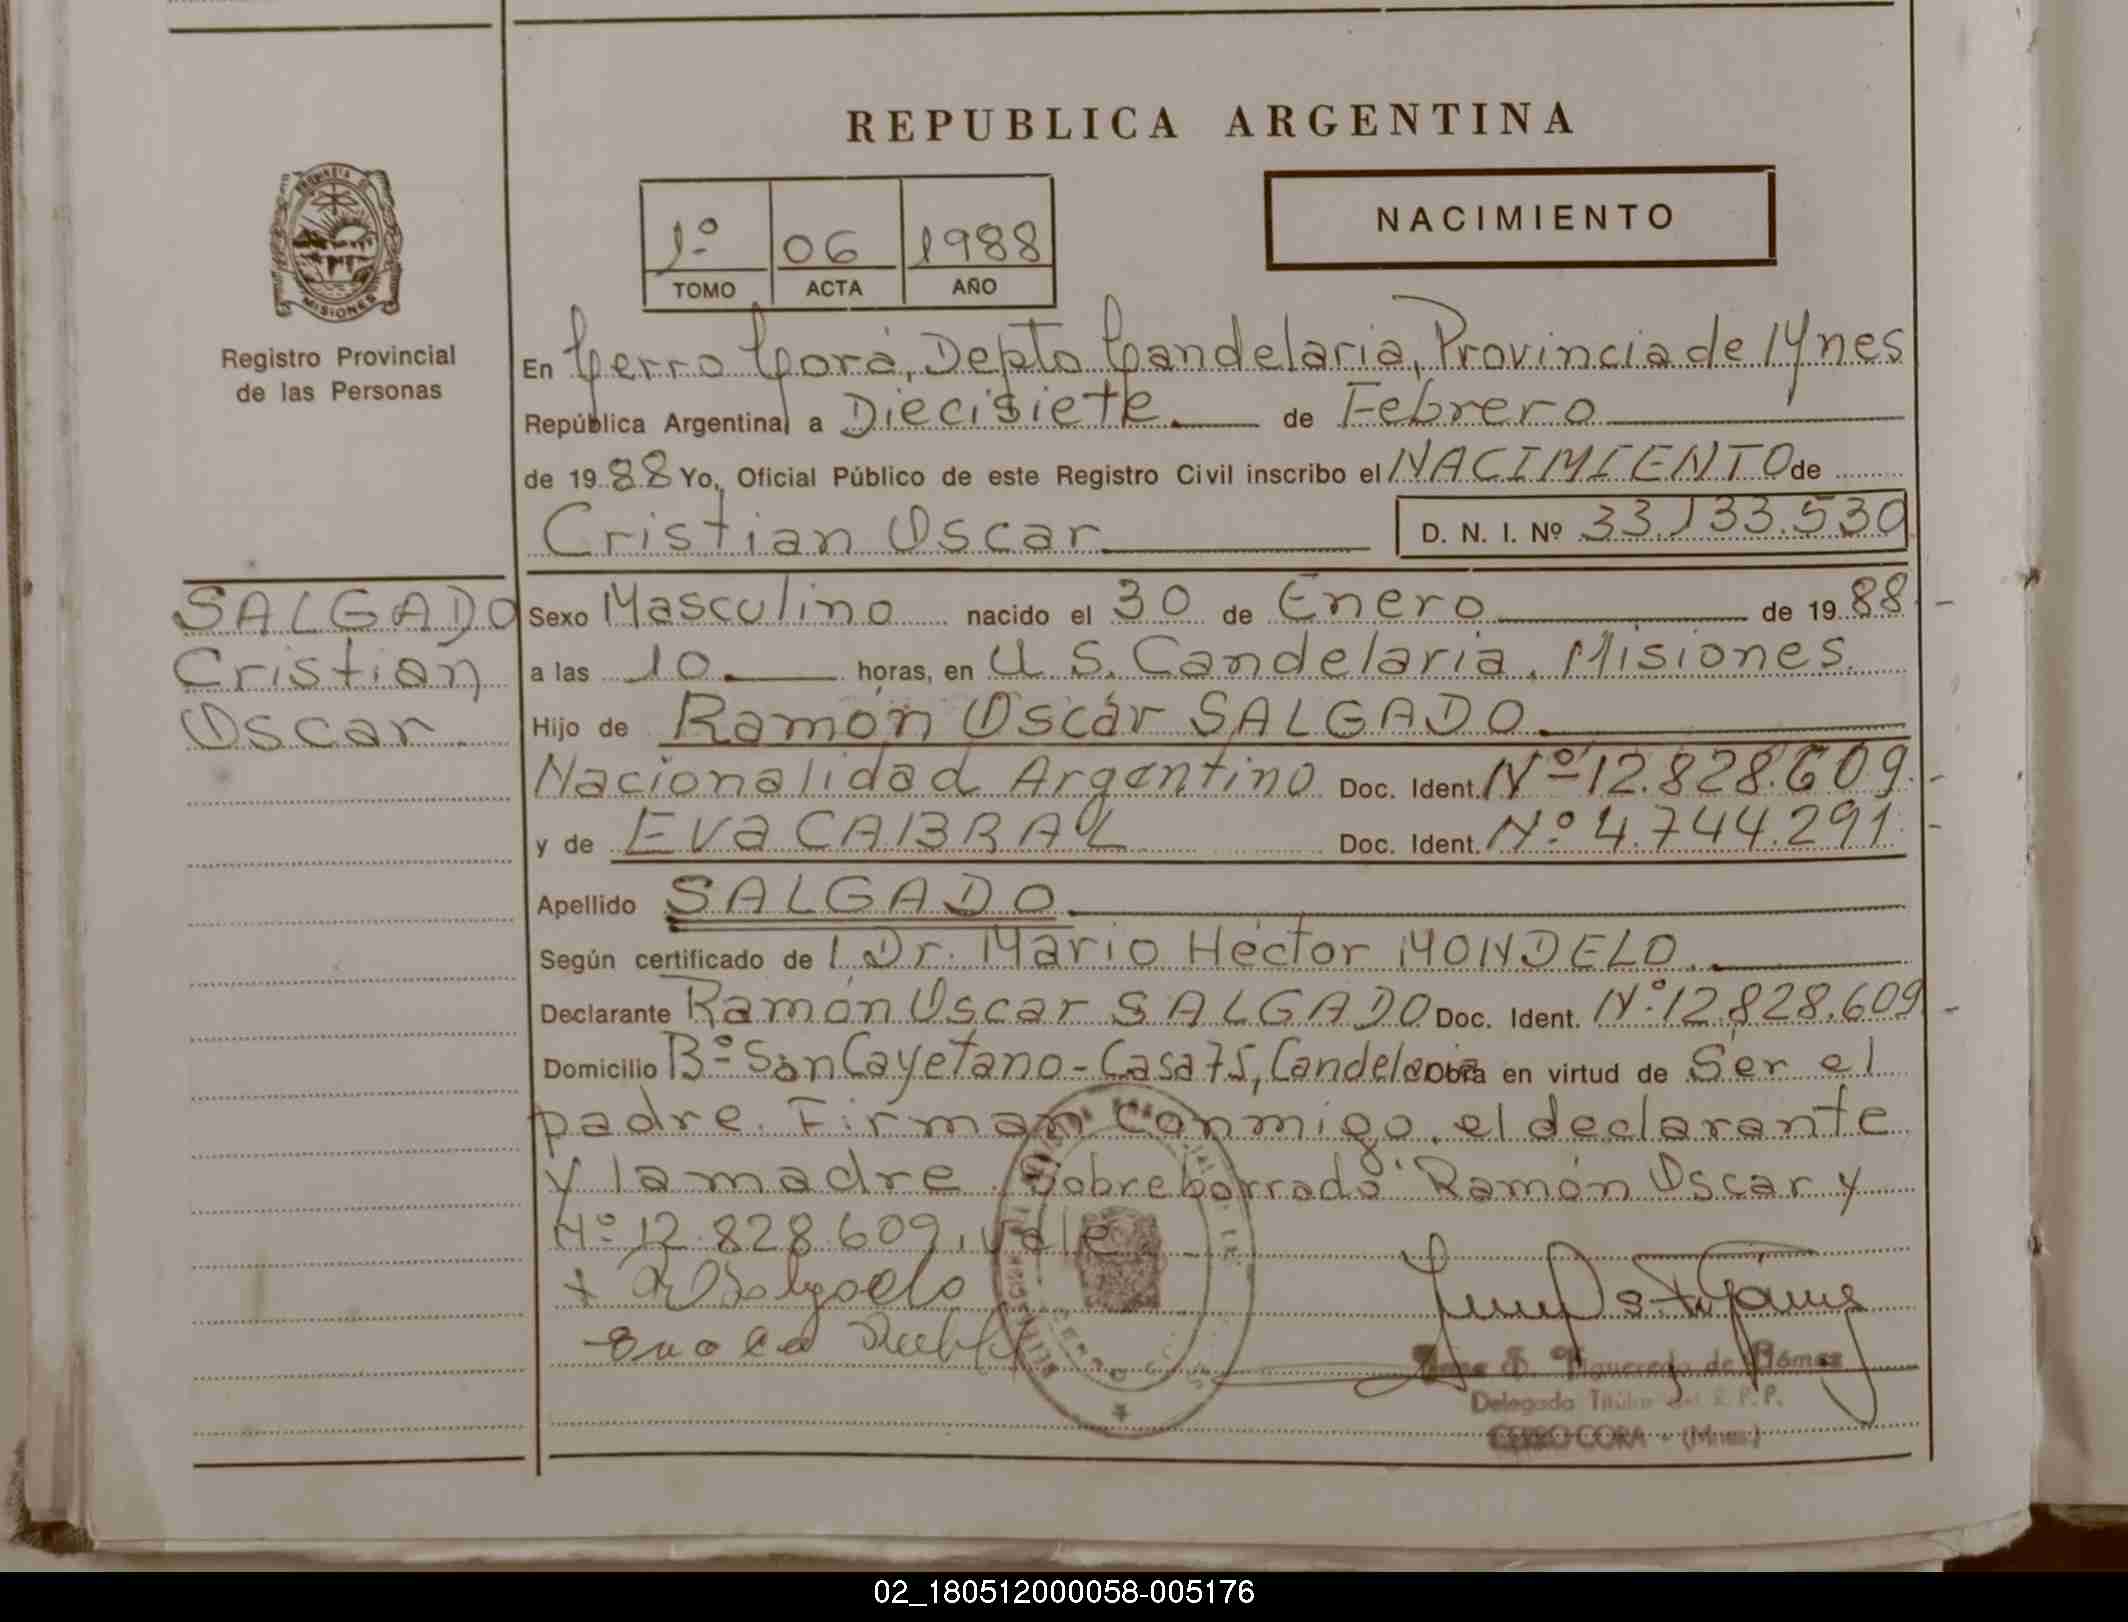 REPUBLICA ARGENTINA
1º 06 1988
TOMO ACTA AÑO
NACIMIENTO
PROVINCIA DE
MISIONES
Registro Provincial
de las Personas
En Cerro Corá, Depto Candelaria, Provincia de Mnes
República Argentina, a Diecisiete de Febrero
de 1988 Yo, Oficial Público de este Registro Civil inscribo el NACIMIENTO de
Cristian Oscar D. N. I. Nº 33.133.530
SALGADO
Cristian
Oscar
Sexo Masculino nacido el 30 de Enero de 1988
a las 10 horas, en U. S. Candelaria, Misiones.
Hijo de Ramón Oscar SALGADO
Nacionalidad Argentino Doc. Ident. Nº 12.828.609.
y de Eva CABRAL Doc. Ident. Nº 4.744.291.
Apellido SALGADO
Según certificado de l Dr. Mario Héctor MONDELO
Declarante Ramón Oscar SALGADO Doc. Ident. Nº 12.828.609
Domicilio Bº San Cayetano - Casa 75, Candelaria Obra en virtud de Ser el
padre. Firman conmigo, el declarante
y la madre. Sobreborrado "Ramón Oscar y
Nº 12.828.609, vale
Figueredo de Gómez
Delegada Titular del R. P. P.
CERRO CORA - (Mnes.)
02_180512000058-005176